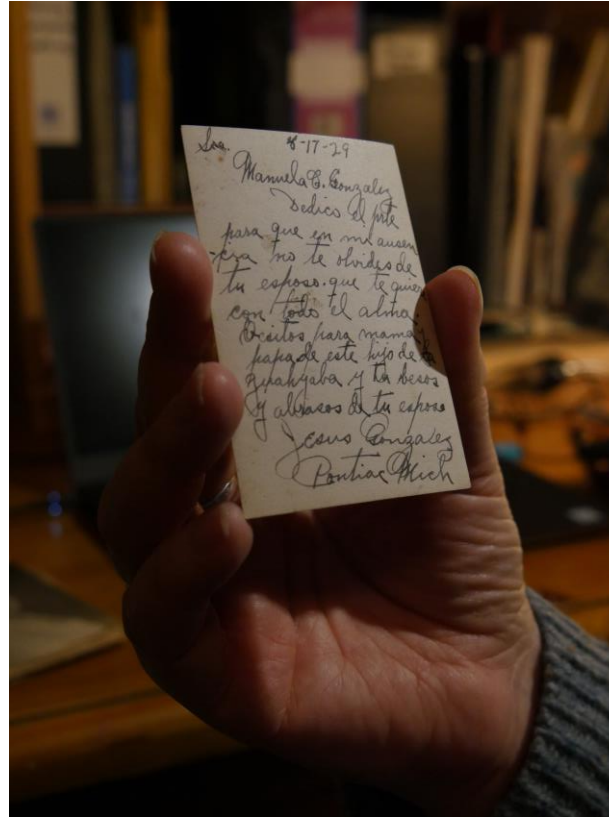 Sra. 8-17-29
Manuela G. Gonzalez
Dedico el pte
para que en mi ausen
cia no te olvides de
tu esposo. que te quiere
con todo el alma.
Besitos para mama
papa de este hijo de la
guahyaba y tu besos
y abrasos de tu esposo
Jesus Gonzalez
Pontiac Mich